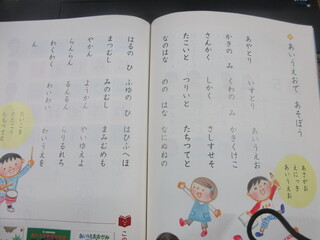 あいうえおで あそぼう
あやとり いすとり あいうえお
かきのみ くわのみ かきくけこ
さんかく しかく さしすせそ
たこいと つりいと たちつてと
なのはな ののはな なにぬねの
はるのひ ふゆのひ はひふへほ
まつむし みのむし まみむめも
やかん ようかん やいゆえよ
らんらん るんるん らりるれろ
わくわく わいわい わいうえを
ん
あさがお
えにっき
あいうえお